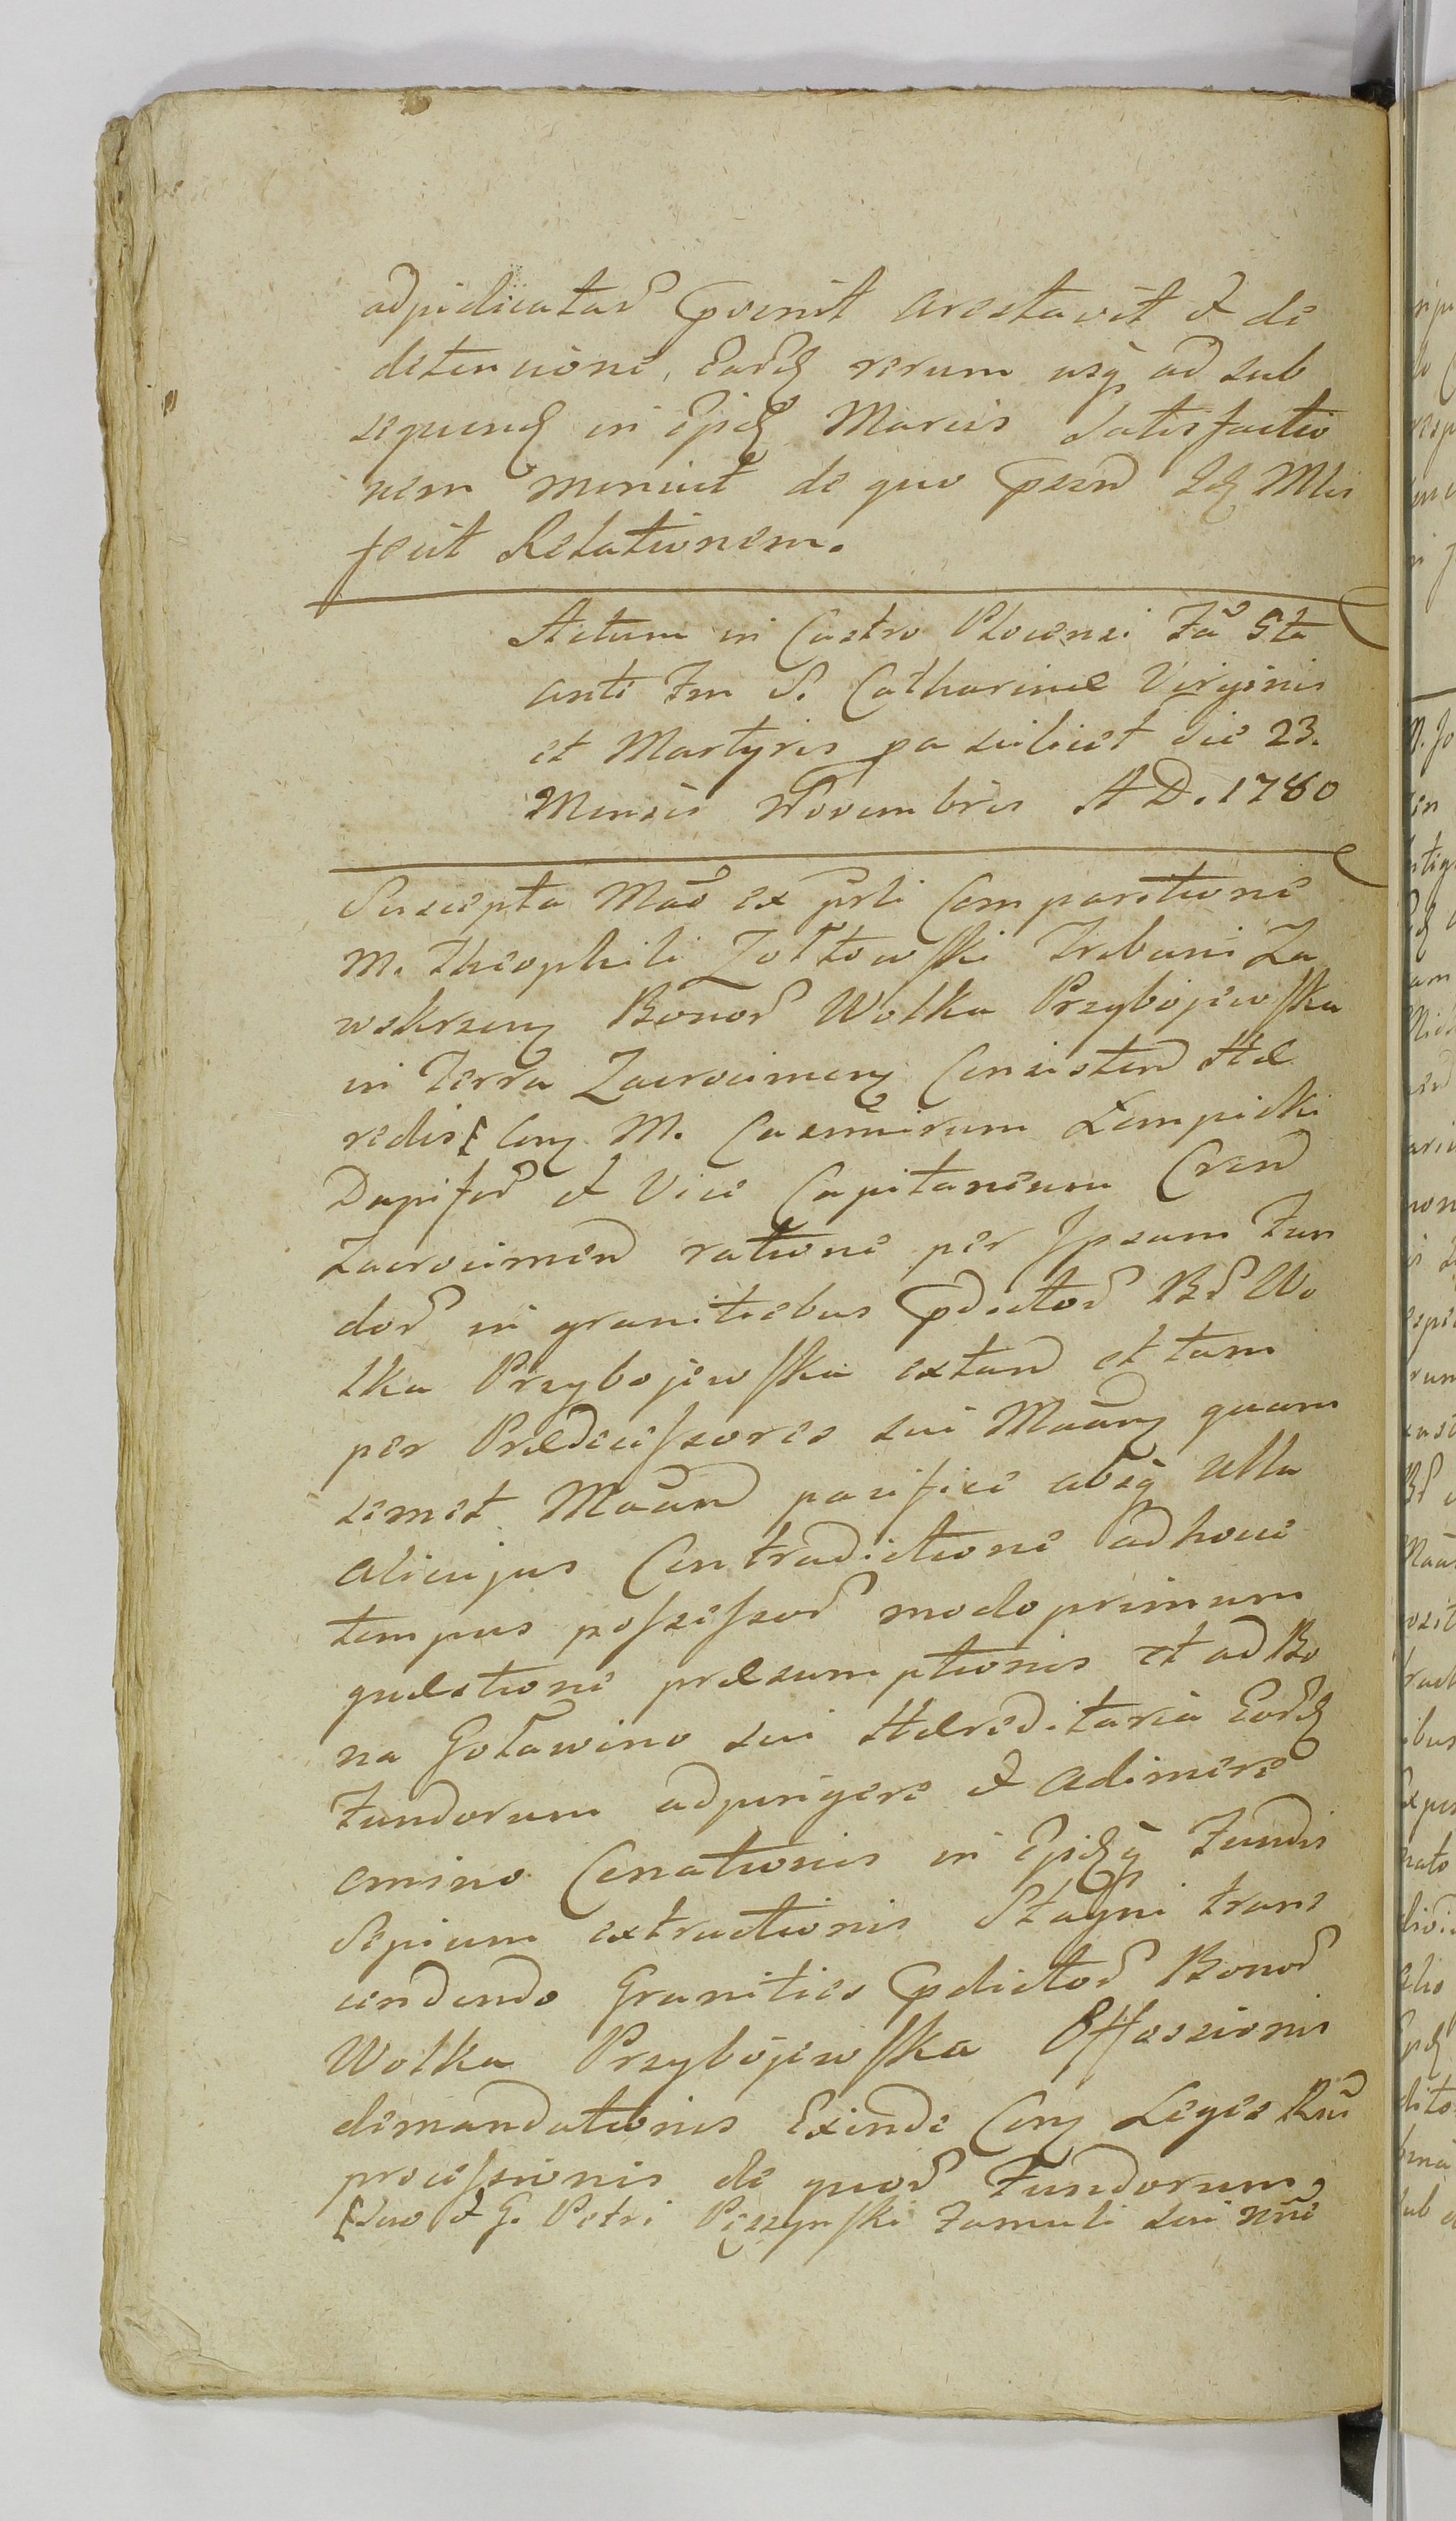 adjudicatar̃ p̃venit arestavit & de
detencione, Earũd̃ rerum usq̃ ad sub
sequend̃ in Ejsd̃ Marcis Satisfactio
nem monuit de quo p̃sen Id̃ Mlis
fecit Relationem.
Actum in Castro Plocensi Fã 5ta
ante Fm S. Catharinæ Virginis
et Martyris pa scilicet die 23.
Mensis Novembris A D. 1780
Suscepta Mãõ ex p̃rti Comparitione
M. Theophili Zołtowski Tribuni Za
wskrzen Bonor̃ Wolka Przybojewska
in Terra Zacrocimen Consisten Hæ
redis Con M. Casimirum Lempicki
Dapifer̃ & Vice Capitaneum Cren
Zacrocimen ratione per Ipsum Fun
dor̃ in granitiebus p̃dictor̃ Br̃ Wo
lka Przybojewska extan et tam
per Prædecessores sui Mãan quam
semet Mãan pacifice absq̃ ulla
alicujus Contradictione ad hocce
tempus possessor̃ modo primum
quæstione præsumptionis et ad Bo
na Goławino sui Hæreditaria Eord̃
Fundorum adjungere & adimere
animo Conationis in Ejsd̃q̃ Fundis
Sepium extructionis Stagni trans
cendendo Granities p̃dictor̃ Bonor̃
Wolka Przybojewska Effossionis
demandationis Exinde Con Leges Rni
processionis de quor̃ Fundorum
Suo & G. Petri Pęszynski Famuli sui nñe